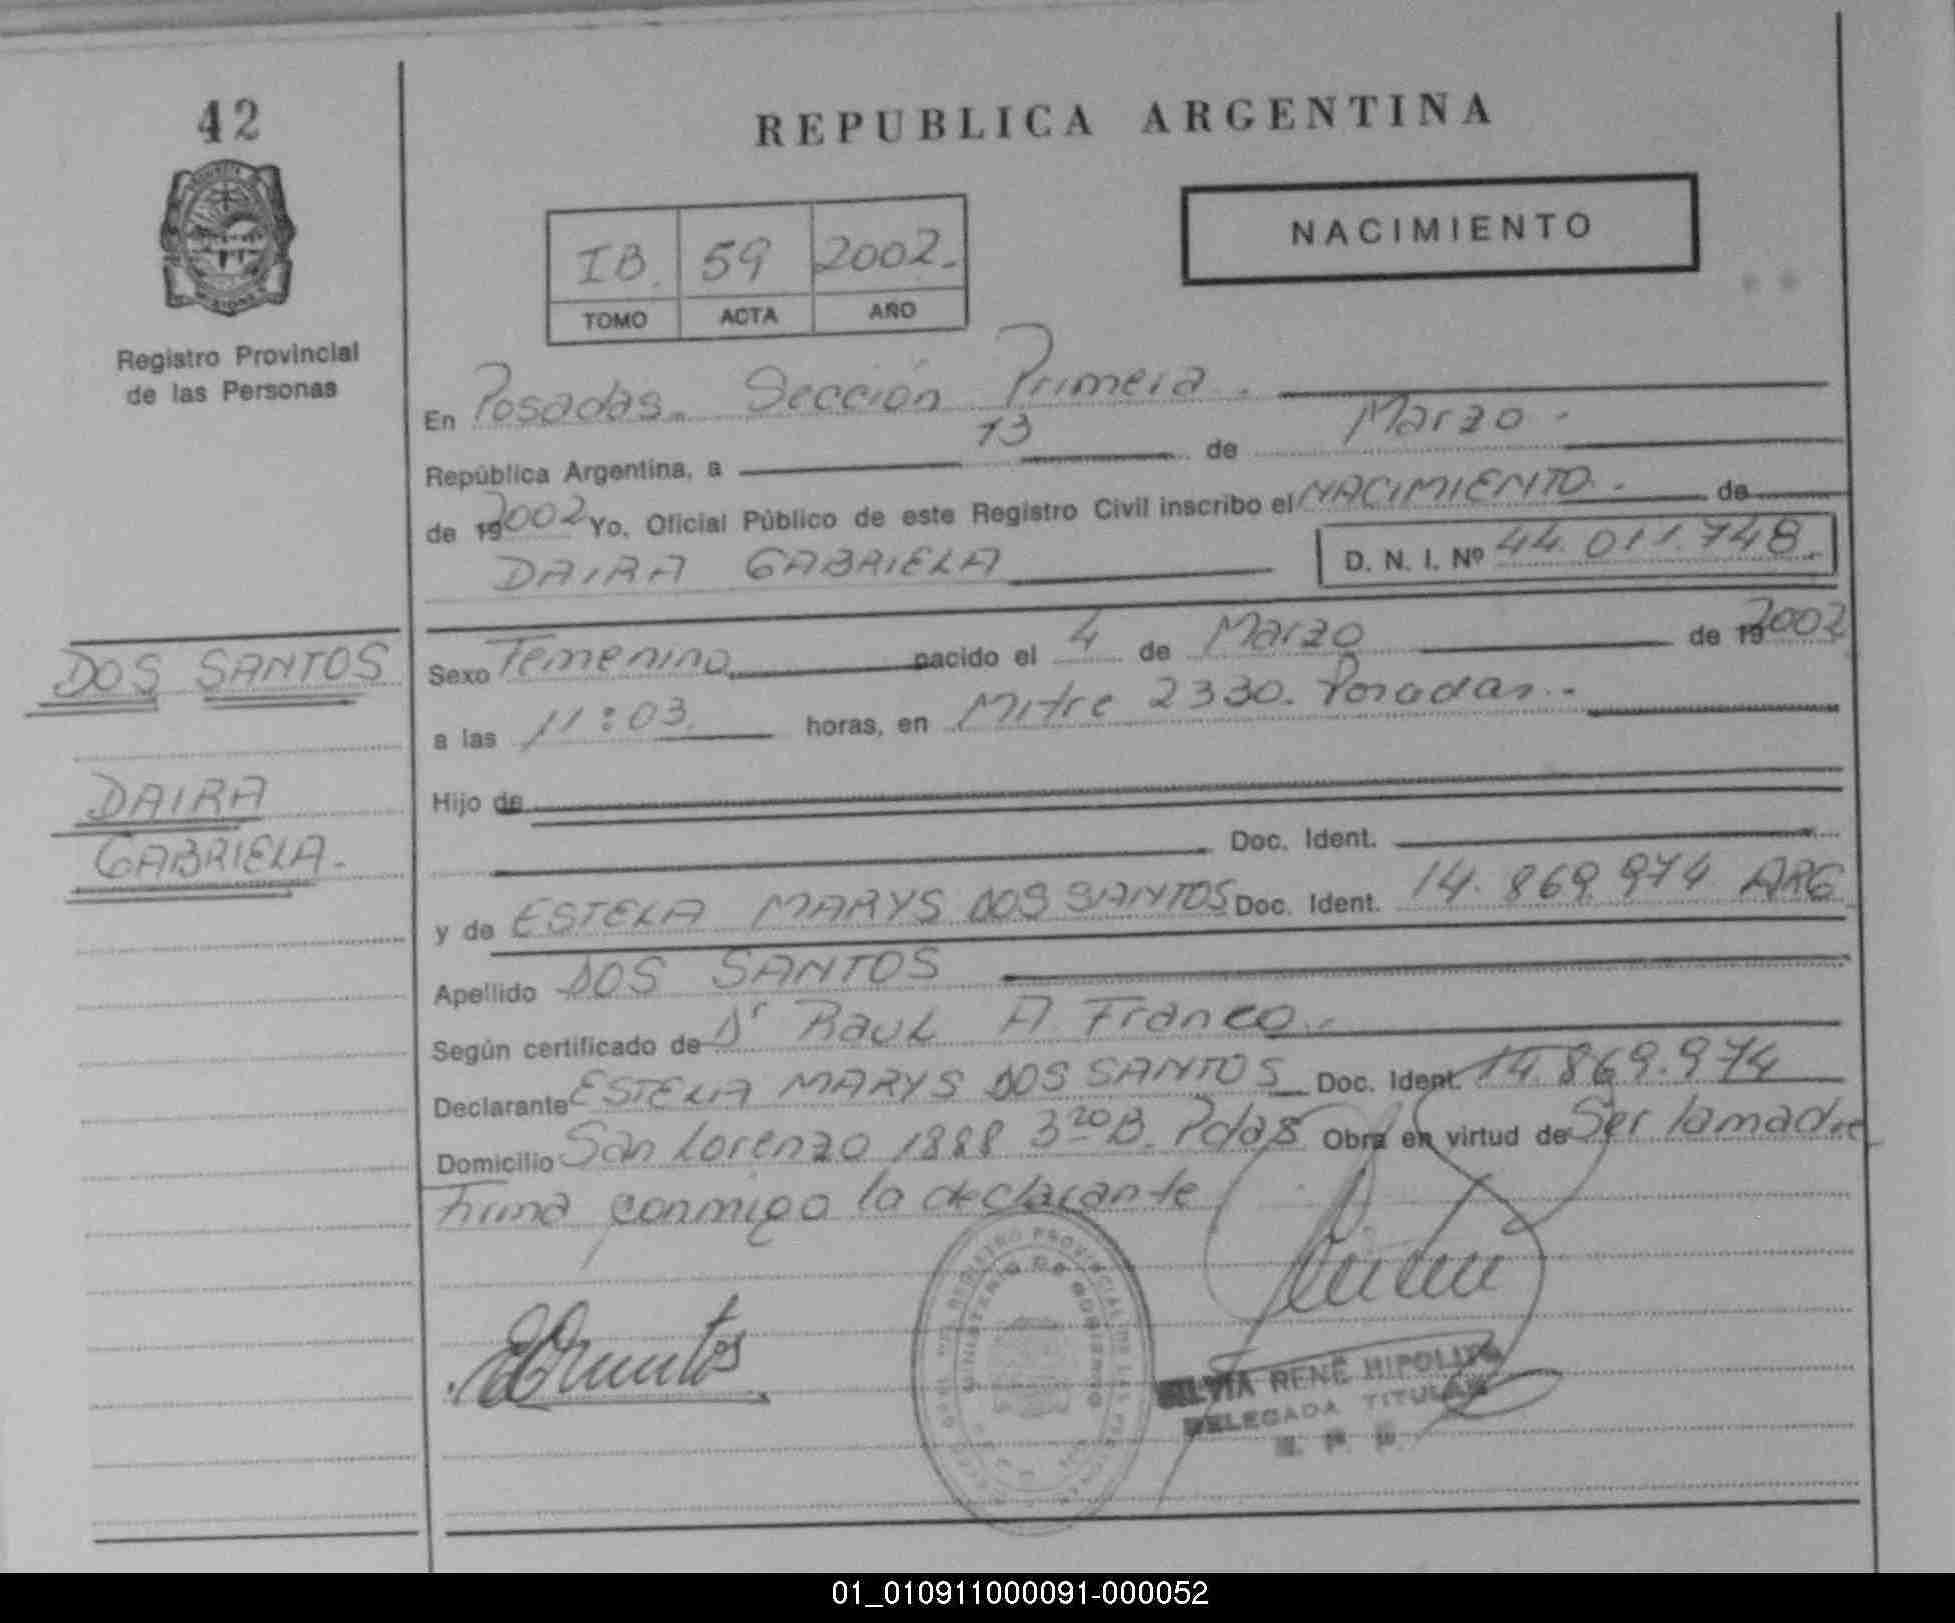 42
REPUBLICA ARGENTINA
NACIMIENTO
IB. 59 2002.
TOMO ACTA AÑO
Registro Provincial
de las Personas
En Posadas. Sección Primera.
República Argentina, a 13 de Marzo.
de 19 2002 Yo, Oficial Público de este Registro Civil inscribo el NACIMIENTO. de
DAIRA GABRIELA D. N. I. Nº 44.011.748.
DOS SANTOS
DAIRA
GABRIELA.
Sexo Femenino nacido el 4 de Marzo de 19 2002
a las 11:03. horas, en Mitre 2330. Posadas.-
Hijo de
Doc. Ident.
y de ESTELA MARYS DOS SANTOS Doc. Ident. 14.869.974 ARG
Apellido DOS SANTOS
Según certificado de Dr RAUL A. Franco.
Declarante ESTELA MARYS DOS SANTOS Doc. Ident. 14.869.974
Domicilio San Lorenzo 1888 3ro B. Pdas Obra en virtud de Ser la madre
Firma conmigo la declarante
REGISTRO PROVINCIAL DE LAS PERSONAS
MINISTERIO DE GOBIERNO
SILVIA RENÉ HIPOLITO
DELEGADA TITULAR
01_010911000091-000052